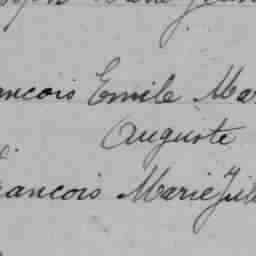 ancois Emile Ma
Auguste
ancois Marie Jul